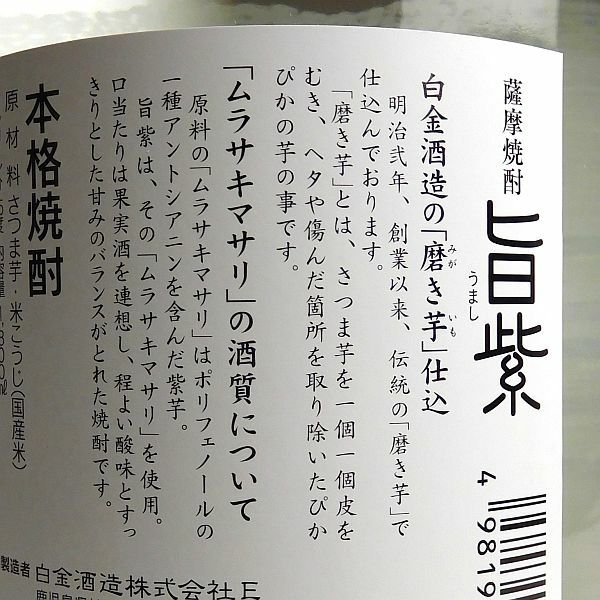 薩摩焼酎
旨紫
うまし
白金酒造の「磨き芋」仕込
みが
いも
明治弐年、創業以来、伝統の「磨き芋」で
仕込んでおります。
「磨き芋」とは、さつま芋を一個一個皮を
むき、ヘタや傷んだ箇所を取り除いたぴか
ぴかの芋の事です。
「ムラサキマサリ」の酒質について
原料の「ムラサキマサリ」はポリフェノールの
一種アントシアニンを含んだ紫芋。
旨紫は、その「ムラサキマサリ」を使用。
口当たりは果実酒を連想し、程よい酸味とすっ
きりとした甘みのバランスがとれた焼酎です。
本格焼酎
原材料 さつま芋・米こうじ(国産米)
製造者 白金酒造株式会社E
4 9819